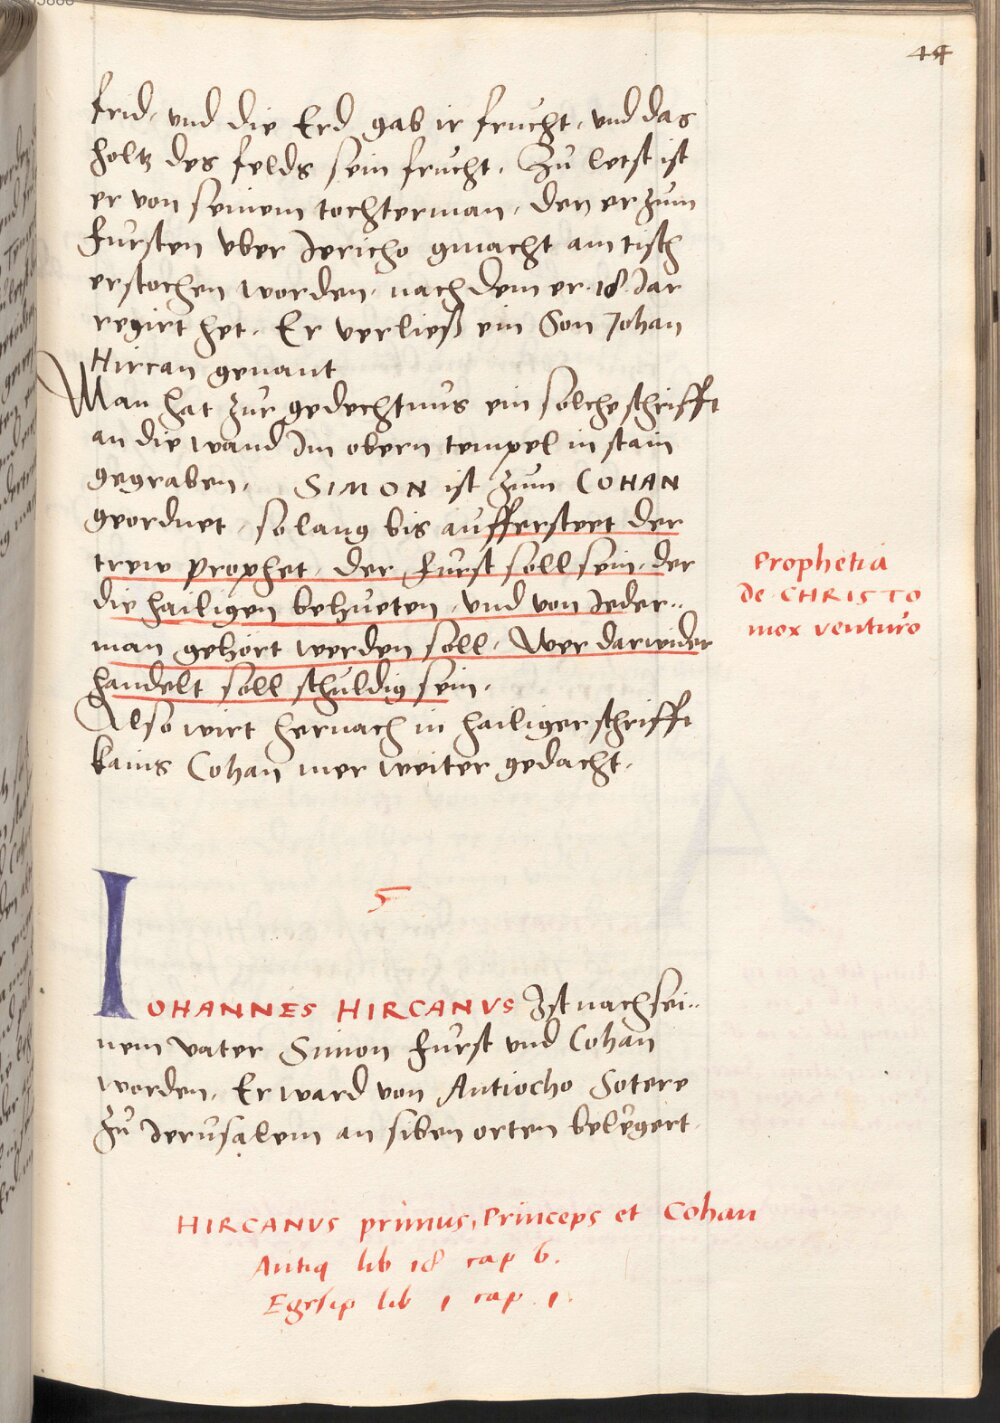 44
frid, und die Erd gab ir frucht, und das
holtz des felds sein frucht. Zů letst ist
er von seinem tochterman, den er zum
fursten vber Jericho gmacht am tisch
erstochen worden, nach dem er 18 Jar
regirt het. Er verließ ein Son Johan
Hircan genant
Man hat zur gedechtnus ein solche schrifft
an die wand Im obern tempel in stain
gegraben. SIMON ist zum COHAN
geordnet, so lang bis auffersteet der
trew prophet, der furst soll sein, der
die hailigen behueten, und von Jeder-
man gehört werden soll. Wer darwider
handelt soll schuldig sein.
Also wirt hernach in hailiger schrifft
kains Cohan mer weiter gedacht.
Prophetia
de CHRISTO
mox venturo
5
IOHANNES HIRCANVS Ist nach sei-
nem vater Simon furst vnd Cohan
worden. Er ward von Antiocho Sotere
zů Jerusalem an siben orten belegert.
HIRCANVS primus, Princeps et Cohan
Antiq lib 18 cap 6.
Egesip lib 1 cap 1.